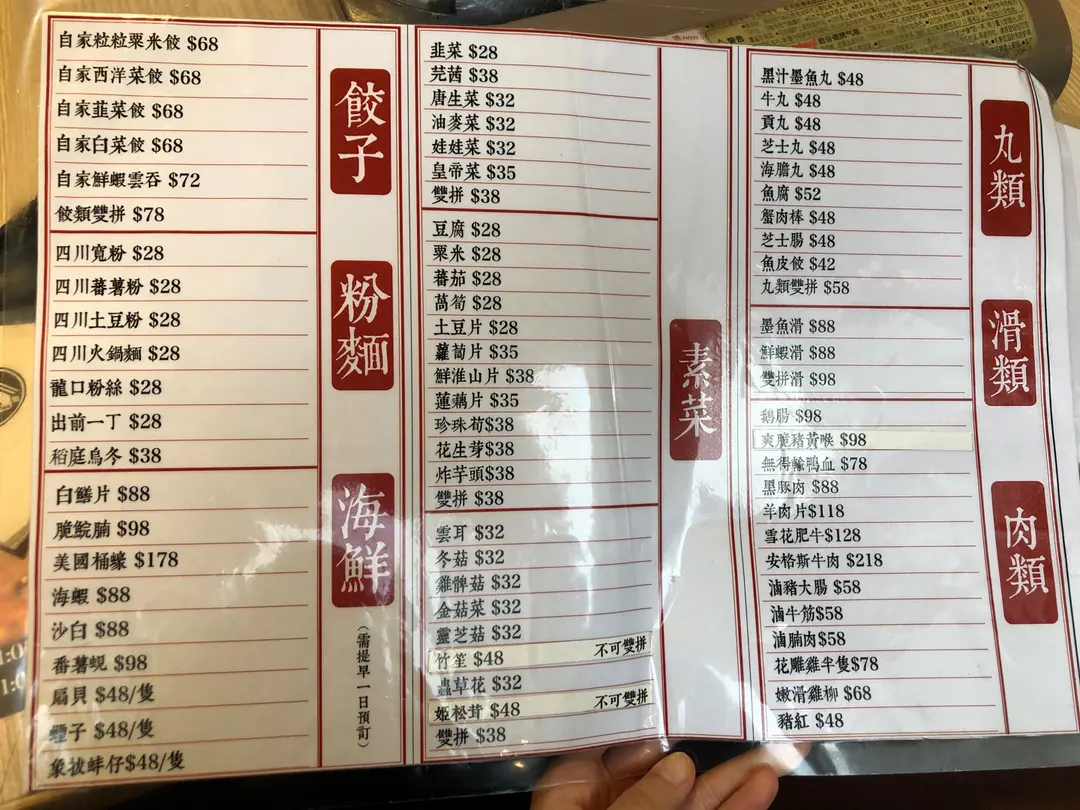 餃子
自家粒粒粟米餃 $68
自家西洋菜餃 $68
自家韮菜餃 $68
自家白菜餃 $68
自家鮮蝦雲吞 $72
餃類雙拼 $78
粉麵
四川寬粉 $28
四川蕃薯粉 $28
四川土豆粉 $28
四川火鍋麵 $28
龍口粉絲 $28
出前一丁 $28
稻庭烏冬 $38
海鮮
(需提早一日預訂)
白鱔片 $88
脆鯇腩 $98
美國桶蠔 $178
海蝦 $88
沙白 $88
番薯蜆 $98
扇貝 $48/隻
子 $48/隻
象拔蚌仔$48/隻
素菜
韭菜 $28
芫茜 $38
唐生菜 $32
油麥菜 $32
娃娃菜 $32
皇帝菜 $35
雙拼 $38
豆腐 $28
粟米 $28
蕃茄 $28
萵筍 $28
土豆片 $28
蘿蔔片 $35
鮮淮山片 $38
蓮藕片 $35
珍珠荀$38
花生芽$38
炸芋頭$38
雙拼 $38
雲耳 $32
冬菇 $32
雞髀菇 $32
金菇菜 $32
靈芝菇 $32
竹笙 $48 不可雙拼
蟲草花 $32
姬松茸 $48 不可雙拼
雙拼 $38
丸類
黑汁墨魚丸 $48
牛丸 $48
貢丸 $48
芝士丸 $48
海膽丸 $48
魚腐 $52
蟹肉棒 $48
芝士腸 $48
魚皮餃 $42
丸類雙拼 $58
滑類
墨魚滑 $88
鮮蝦滑 $88
雙拼滑 $98
肉類
鵝腸 $98
爽脆豬黃喉 $98
無得輸鴨血 $78
黑豚肉 $88
羊肉片$118
雪花肥牛$128
安格斯牛肉 $218
滷豬大腸 $58
滷牛筋$58
滷腩肉$58
花雕雞半隻$78
嫩滑雞柳 $68
豬紅 $48